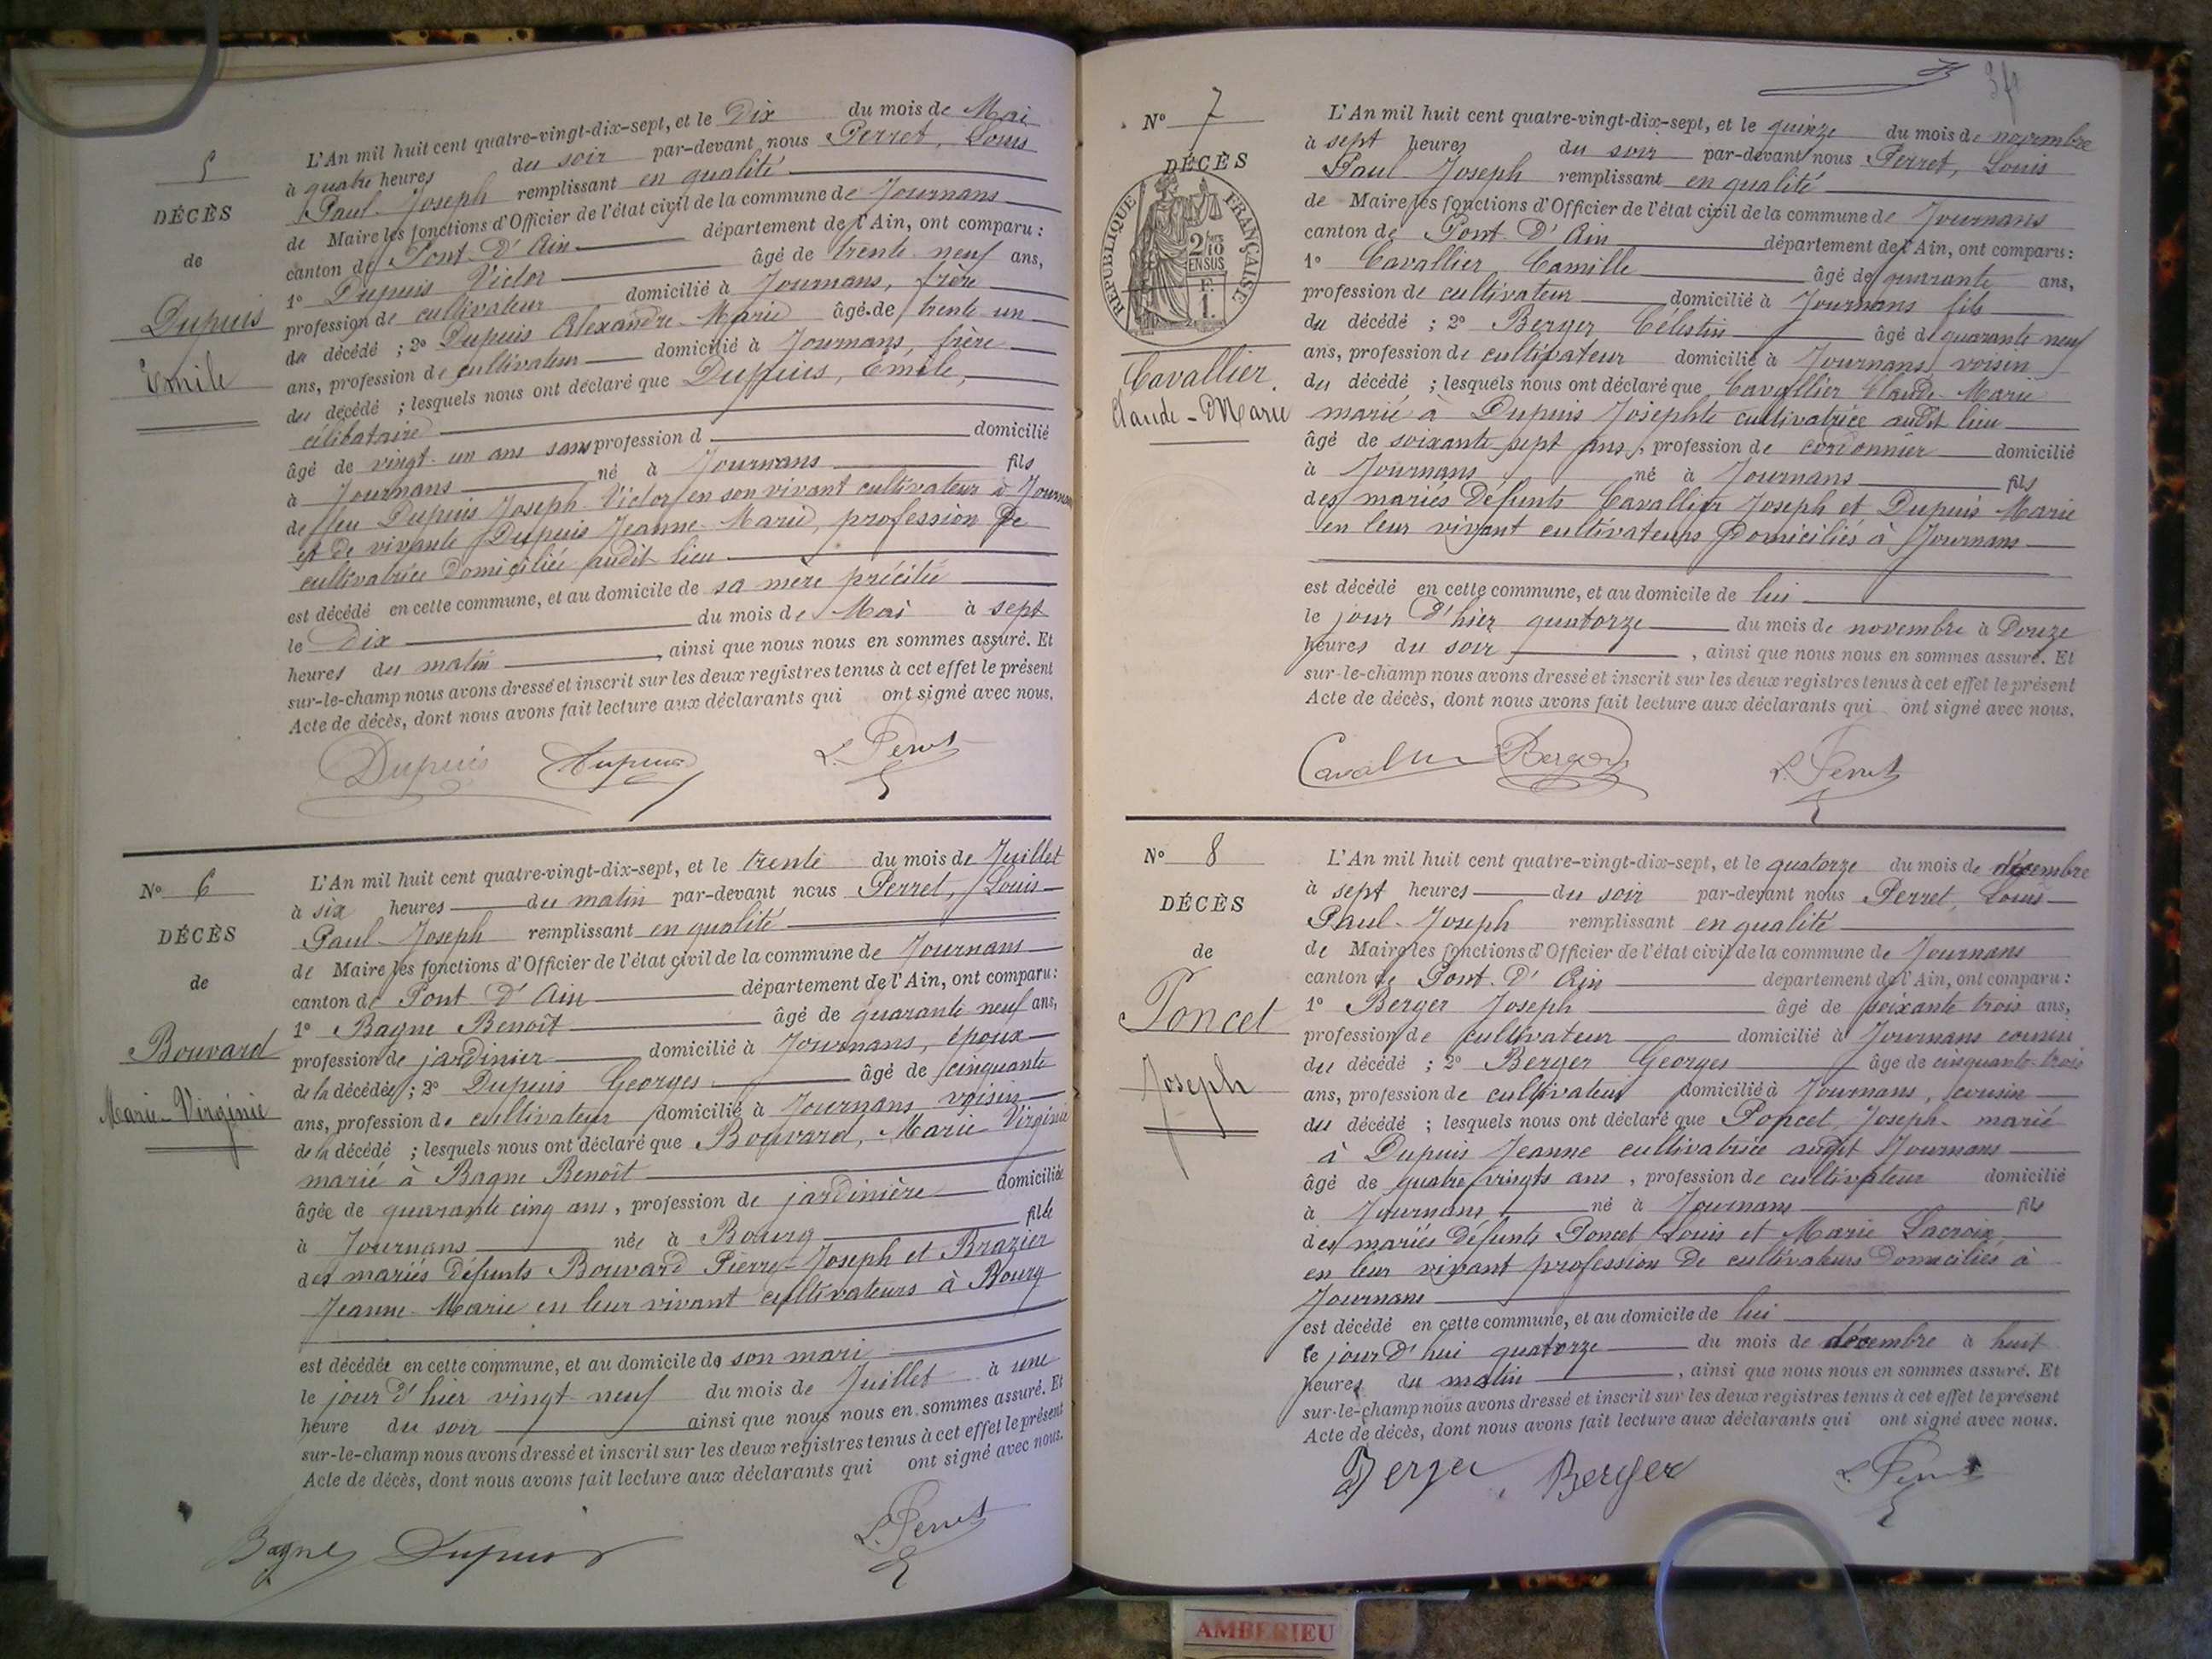 5
DÉCÈS
de
Dupuis
Emile
L'An mil huit cent quatre-vingt-dix-sept, et le Dix du mois de Mai
à quatre heures du soir par-devant nous Perret, Louis
Paul-Joseph remplissant en qualité
de Maire les fonctions d'Officier de l'état civil de la commune de Journans
canton de Pont-D'Ain département de l'Ain, ont comparu :
1° Dupuis Victor âgé de trente neuf ans,
profession de cultivateur domicilié à Journans, frère
du décédé ; 2° Dupuis Alexandre-Marie âgé de trente un
ans, profession de cultivateur domicilié à Journans, frère
du décédé ; lesquels nous ont déclaré que Dupuis, Emile,
célibataire
âgé de vingt-un ans sans profession d domicilié
à Journans né à Journans fils
de feu Dupuis Joseph-Victor en son vivant cultivateur à Journans
et de vivante Dupuis Jeanne-Marie, profession De
cultivatrice Domiciliée audit lieu
est décédé en cette commune, et au domicile de sa mère précitée
le Dix du mois de Mai à sept
heures du matin, ainsi que nous nous en sommes assuré. Et
sur-le-champ nous avons dressé et inscrit sur les deux registres tenus à cet effet le présent
Acte de décès, dont nous avons fait lecture aux déclarants qui ont signé avec nous.
Dupuis Dupuis L. Perret
N° 6
DÉCÈS
de
Bouvard
Marie-Virginie
L'An mil huit cent quatre-vingt-dix-sept, et le trente du mois de Juillet
à six heures du matin par-devant nous Perret, Louis
Paul-Joseph remplissant en qualité
de Maire les fonctions d'Officier de l'état civil de la commune de Journans
canton de Pont-D'Ain département de l'Ain, ont comparu :
1° Bagne Benoît âgé de quarante neuf ans,
profession de jardinier domicilié à Journans, époux
de la décédée ; 2° Dupuis Georges âgé de cinquante
ans, profession de cultivateur domicilié à Journans voisin
de la décédé ; lesquels nous ont déclaré que Bouvard, Marie-Virginie
marié à Bagne Benoît
âgée de quarante cinq ans, profession de jardinière domiciliée
à Journans née à Bourg fille
des mariés Défunts Bouvard Pierre-Joseph et Brazier
Jeanne-Marie en leur vivant cultivateurs à Bourg
est décédée en cette commune, et au domicile de son mari
le jour d'hier vingt-neuf du mois de Juillet à une
heure du soir ainsi que nous nous en sommes assuré. Et
sur-le-champ nous avons dressé et inscrit sur les deux registres tenus à cet effet le présent
Acte de décès, dont nous avons fait lecture aux déclarants qui ont signé avec nous.
Bagne Dupuis L. Perret
N° 7
DÉCÈS
RÉPUBLIQUE FRANÇAISE
2/10
EN SUS
F.
1.
Cavallier
Claude-Marie
L'An mil huit cent quatre-vingt-dix-sept, et le quinze du mois de novembre
à sept heures du soir par-devant nous Perret, Louis
Paul-Joseph remplissant en qualité
de Maire les fonctions d'Officier de l'état civil de la commune de Journans
canton de Pont-D'Ain département de l'Ain, ont comparu :
1° Cavallier Camille âgé de quarante ans,
profession de cultivateur domicilié à Journans fils
du décédé ; 2° Berger Célestin âgé de quarante neuf
ans, profession de cultivateur domicilié à Journans voisin
du décédé ; lesquels nous ont déclaré que Cavallier Claude-Marie
marié à Dupuis Josephte cultivatrice audit lieu
âgé de soixante sept ans, profession de cordonnier domicilié
à Journans né à Journans fils
des mariés Défunts Cavallier Joseph et Dupuis Marie
en leur vivant cultivateurs Domiciliés à Journans
est décédé en cette commune, et au domicile de lui
le jour d'hier quatorze du mois de novembre à Douze
heures du soir, ainsi que nous nous en sommes assuré. Et
sur-le-champ nous avons dressé et inscrit sur les deux registres tenus à cet effet le présent
Acte de décès, dont nous avons fait lecture aux déclarants qui ont signé avec nous.
Berger L. Perret
N° 8
DÉCÈS
de
Poncet
Joseph
L'An mil huit cent quatre-vingt-dix-sept, et le quatorze du mois de décembre
à sept heures du soir par-devant nous Perret, Louis
Paul-Joseph remplissant en qualité
de Maire les fonctions d'Officier de l'état civil de la commune de Journans
canton de Pont-D'Ain département de l'Ain, ont comparu :
1° Berger Joseph âgé de soixante trois ans,
profession de cultivateur domicilié à Journans cousin
du décédé ; 2° Berger Georges âgé de cinquante-trois
ans, profession de cultivateur domicilié à Journans, cousin
du décédé ; lesquels nous ont déclaré que Poncet, Joseph-marié
à Dupuis Jeanne cultivatrice audit Journans
âgé de quatre vingts ans, profession de cultivateur domicilié
à Journans né à Journans fils
des mariés défunts Poncet Louis et Marie Lacroix,
en leur vivant profession De cultivateurs Domiciliés à
Journans
est décédé en cette commune, et au domicile de lui
le jour d'hui quatorze du mois de décembre à huit
heures du matin, ainsi que nous nous en sommes assuré. Et
sur-le-champ nous avons dressé et inscrit sur les deux registres tenus à cet effet le présent
Acte de décès, dont nous avons fait lecture aux déclarants qui ont signé avec nous.
Berger Berger L. Perret
AMBERIEU